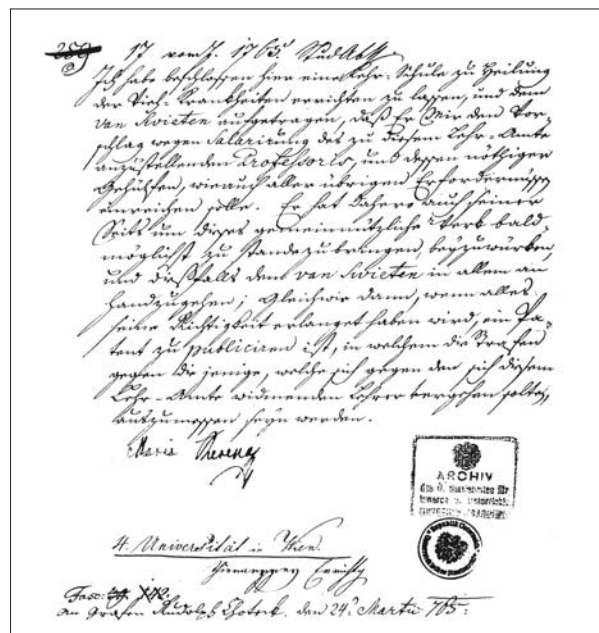 17 vom J. 1765.
Ich habe beschlossen hier eine Lehr-Schule zu Heilung
der Vieh-Krankheiten errichten zu lassen, und dem
van Swieten aufgetragen, daß Er Mir den Vor-
schlag wegen Salarirung des zu diesem Lehr-Amte
anzustellenden Professoris, und dessen nöthigen
Gehülfen, wie auch aller übrigen Erfordernissen
einreichen solle. Er hat dahero auch seiner
Seits um dieses gemeinnützliche Werk bald-
möglichst zu stande zu bringen, beyzuwürken,
und dießfalls dem van Swieten in allem an
handzugehen; Gleichwie dann, wenn alles
seine Richtigkeit erlanget haben wird, ein Pa-
tent zu publiciren ist, in welchem die Strafen
gegen die jenige, welche sich gegen den sich diesem
Lehr-Amte widmenden Lehrer vergehen sollten,
auszumessen seyn werden.
Maria Theresia
ARCHIV
4. Universität in Wien.
An Grafen Rudolph Choteck. den 24. Martii 765.